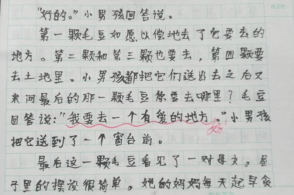 "好的。"小男孩回答说。
第一颗毛豆如愿以偿地去了它要去的
地方。第二颗和第三颗也要去，第四颗要
去土地里。小男孩都把它们送出去之后又
来问最后的那一颗毛豆你要去哪里？毛豆
回答说："我要去一个有爱的地方。"小男孩
把它送到了一个窗台前。
最后这一颗毛豆看见了一对母女，屋
子里的摆设很简单，她的妈妈每天起早贪